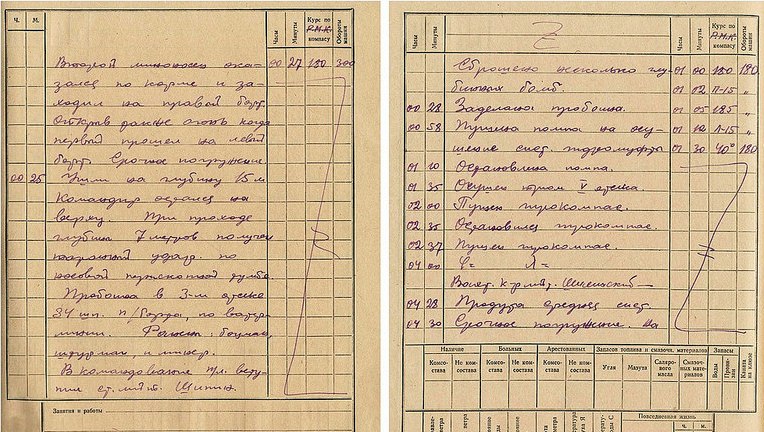 Ч. М. Часы Минуты Курс по Р.М.К. компасу Обороты машин
Второй миноносец ока- 00 27 180 300
зался по корме и за-
ходил на правый борт.
Открыв ранее огонь когда
первый прошел на левый
борт. Срочное погружение
00 25 Ушли на глубину 15 м
Командир остался на
верху. При проходе
глубины 7 метров получен
удар по
носовой
Пробоина в 3-м отсеке
24 шп. п/борта, по ватер-
линии. боцман,
штурман, и
В командование п/л всту-
пил ст. л-т. Шипин.
Занятия и работы
Часы Минуты Курс по Р.М.К. компасу Обороты машин
Сброшено несколько глу- 01 00 180 180
бинных бомб. 01 02 П-15 "
00 28 Заделана пробоина. 01 05 185 "
00 58 Пущена помпа на осу- 01 Л-15 "
шение сист. гидромуфты 01 30 40° 180
01 10 Остановлена помпа.
01 35 Осушен трюм V отсека.
02 00 Пущен гирокомпас.
02 35 Остановился гирокомпас.
02 37 Пущен гирокомпас.
04 00 φ= λ=
Вахт. к-р
04 28 Продута средняя сист
04 30 Срочное погружение. на
Наличие Больных Арестованных Запасов топлива и смазочн. материалов Запасы
Комсостава Не комсостава Комсостава Не комсостава Комсостава Не комсостава Угля Мазута Салярового масла Смазочных материалов Воды Провизии Каната на клюзе
Повседневная жизнь
ч. м.